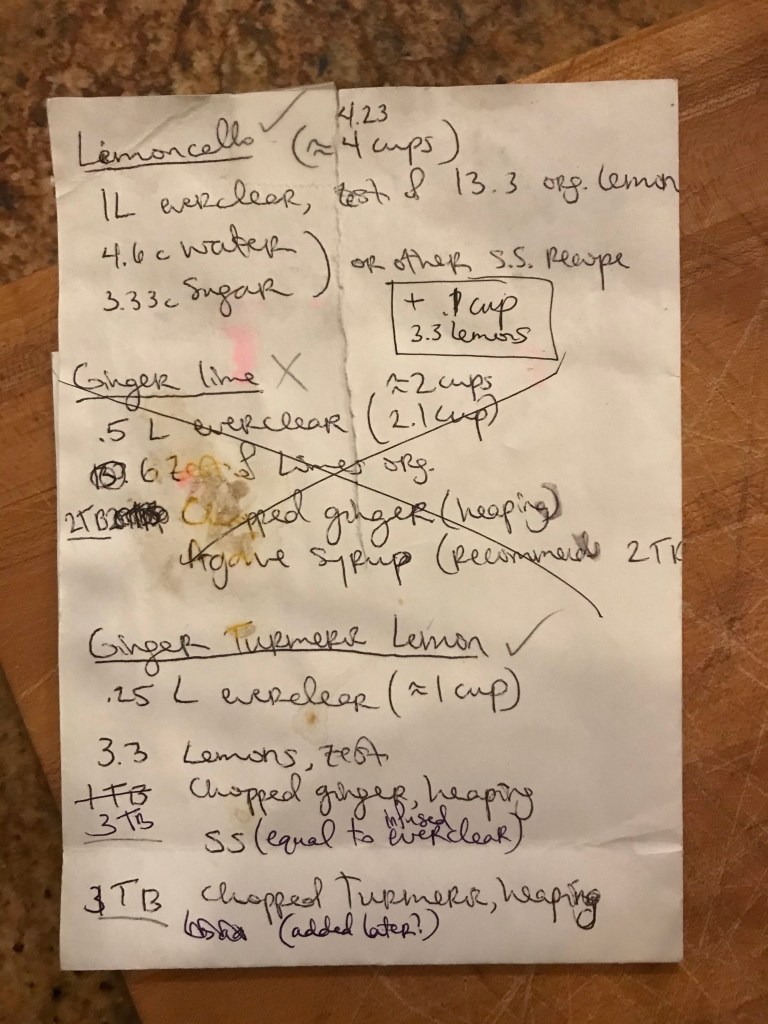 4.23
Lemoncello ✓ (≈ 4 cups)
1L everclear, zest of 13.3 org. lemon
4.6 c water
3.33c Sugar ) or other S.S. recipe
+ .1 cup
3.3 lemons
Ginger lime X ≈2 cups
.5 L everclear (2.1 cup)
6 Zest of Limes org.
2TB Chopped ginger (heaping)
Agave Syrup (recommends 2TB
Ginger Turmeric Lemon ✓
.25 L everclear (≈1 cup)
3.3 Lemons, zest
1TB Chopped ginger, heaping
3TB
SS (equal to infused everclear)
3TB Chopped Turmeric, heaping
(added later?)